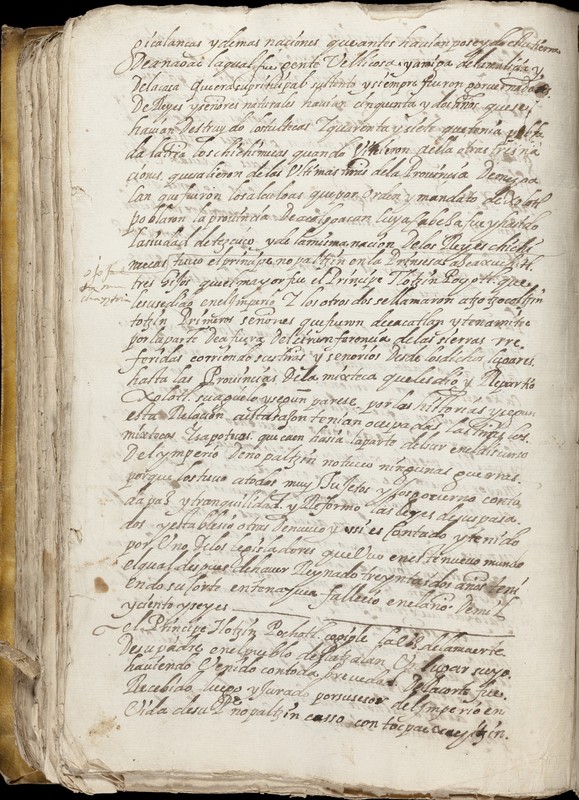 picalancas y demas naciones que antes havian poseydo esta tierra
De anauac la qual fue gente Velicosa y amiga de la malicia y
De la casa que era su principal sustento y siempre fueron governados
De Reyes y señores naturales havian cinquenta y dos años que se
havian Destruydo los tultecas Y quarenta y siete que tenia pobla
da la tria los chichimecas quando Vinieron a ella otras tres na
ciones que salieron de las Ultimas tierras de la Provincia De mechoa
can que fueron los aculhuas que por orden y mandato de Xolotl
poblaron la provincia De aculhuacan cuya cabeza fue y ha sido
la ciudad de tezcuco y de la misma nacion De los Reyes chichi
mecas tuvo el principe nopaltzin en la Princesa
tres hijos que el mayor fue el Principe tlotzin Pochotl que
le susedio en el imperio Y los otros dos se llamaron atzotzocoltzin
totzin Primeros señores que fueron de çacatlan y tenamitec
por la parte De a fuera Del circunferencia de las sierras rre
feridas corriendo sus tierras y señorios Desde los dichos lugares
hasta las Provincias De la mixteca que les dio y Repartio
Xolotl su aguelo y segun parese por las historias y segun
esta Relacion a esta sason tenian ocupadas las tierras los
mixtecos Tzapotecas que caen hasia la parte del sur en el distrito
Del ymperio De nopaltzin no tuvo ningunas guerras
porque los tuvo a todos muy sujetos y los governo con to
da paz y tranquilidad y Reformo las leyes de sus pasa
dos y establesio otras De nuevo y assi es contado y tenido
por Uno De los legisladores que Uvo en este nuevo mundo
el qual despues de haver Reynado treynta y dos años teni
endo su corte en tenayuca fallecio en el año De mil
y ciento y seys
el Principe Tlotzin Pochotl cogiole la de la muerte
De su padre en el pueblo de tlatzalan lugar suyo
haviendo Venido con toda brevedad a la corte fue
Recebido luego y Jurado por susesor del imperio en
Vida de su Pe nopaltzin casso con